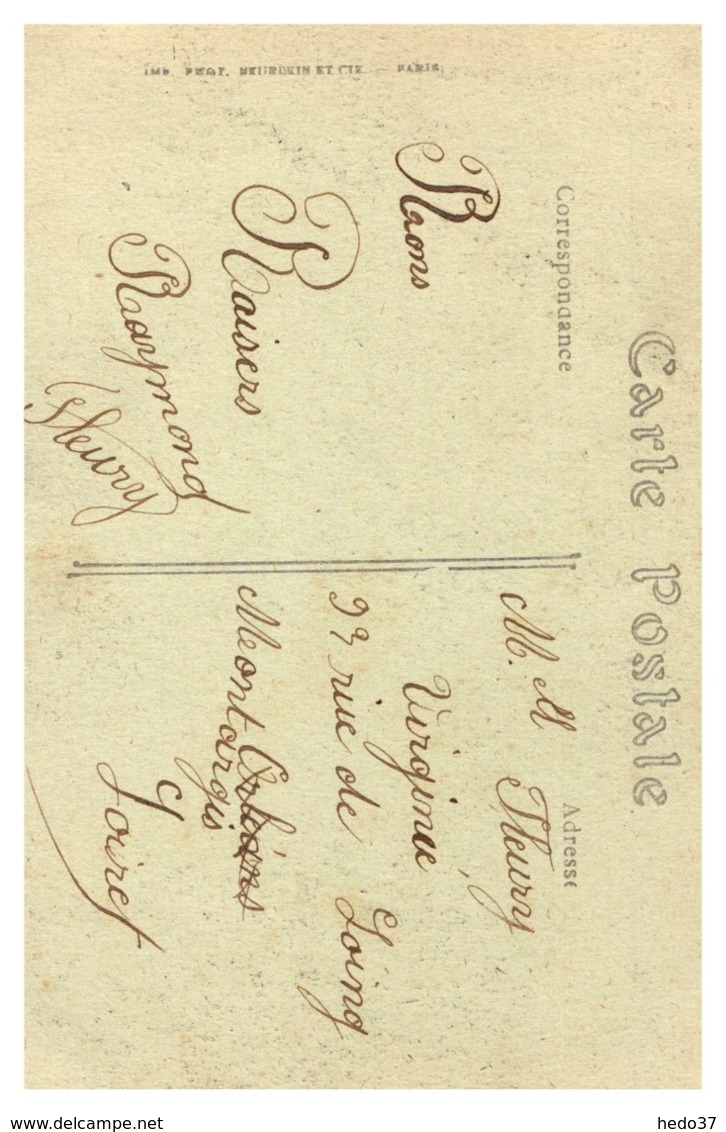 Carte Postale
Correspondance
Adresse
Raons
Raisers
Raymond
Fleury
M. M Fleury
Virginie
93 rue de Loing
Montargis
Loiret
IMP. PHOT. NEURDEIN ET CIE. — PARIS
www.delcampe.net
hedo37